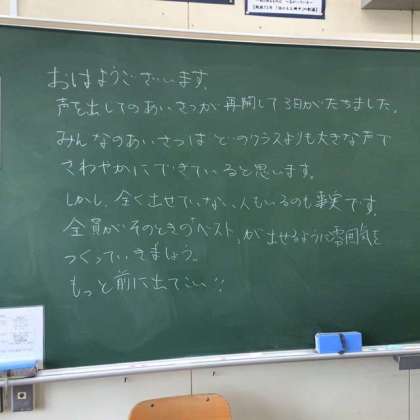 おはようございます。
声を出してのあいさつが再開して3日がたちました。
みんなのあいさつはどのクラスよりも大きな声で
さわやかにできていると思います。
しかし、全く出せていない人もいるのも事実です。
全員がそのときの「ベスト」が出せるように雰囲気を
つくっていきましょう。
もっと前に出てこい!!